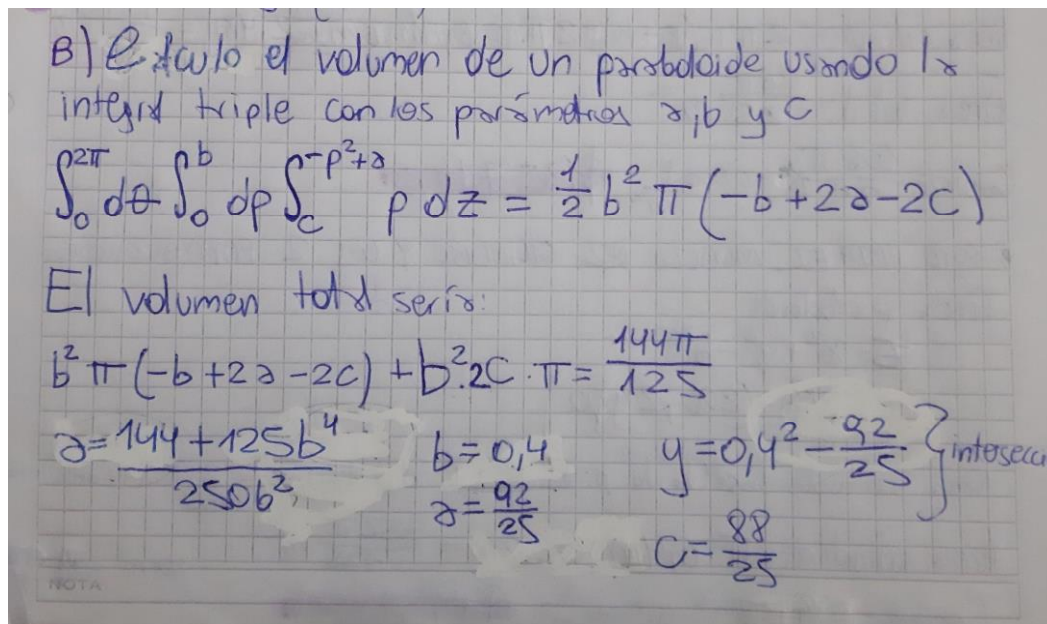 B) Calculo el volumen de un paraboloide usando la
integral triple con los parámetros a, b y c
∫₀^{2π} dθ ∫₀^b dρ ∫_c^{-ρ²+a} ρ dz = 1/2 b² π (-b + 2a - 2c)
El volumen total sería:
b² π (-b + 2a - 2c) + b².2c.π = 144π/125
a = (144 + 125b⁴)/(250b²) b = 0,4 y = 0,4² - 92/25 } intersecc
a = 92/25 c = 88/25
NOTA